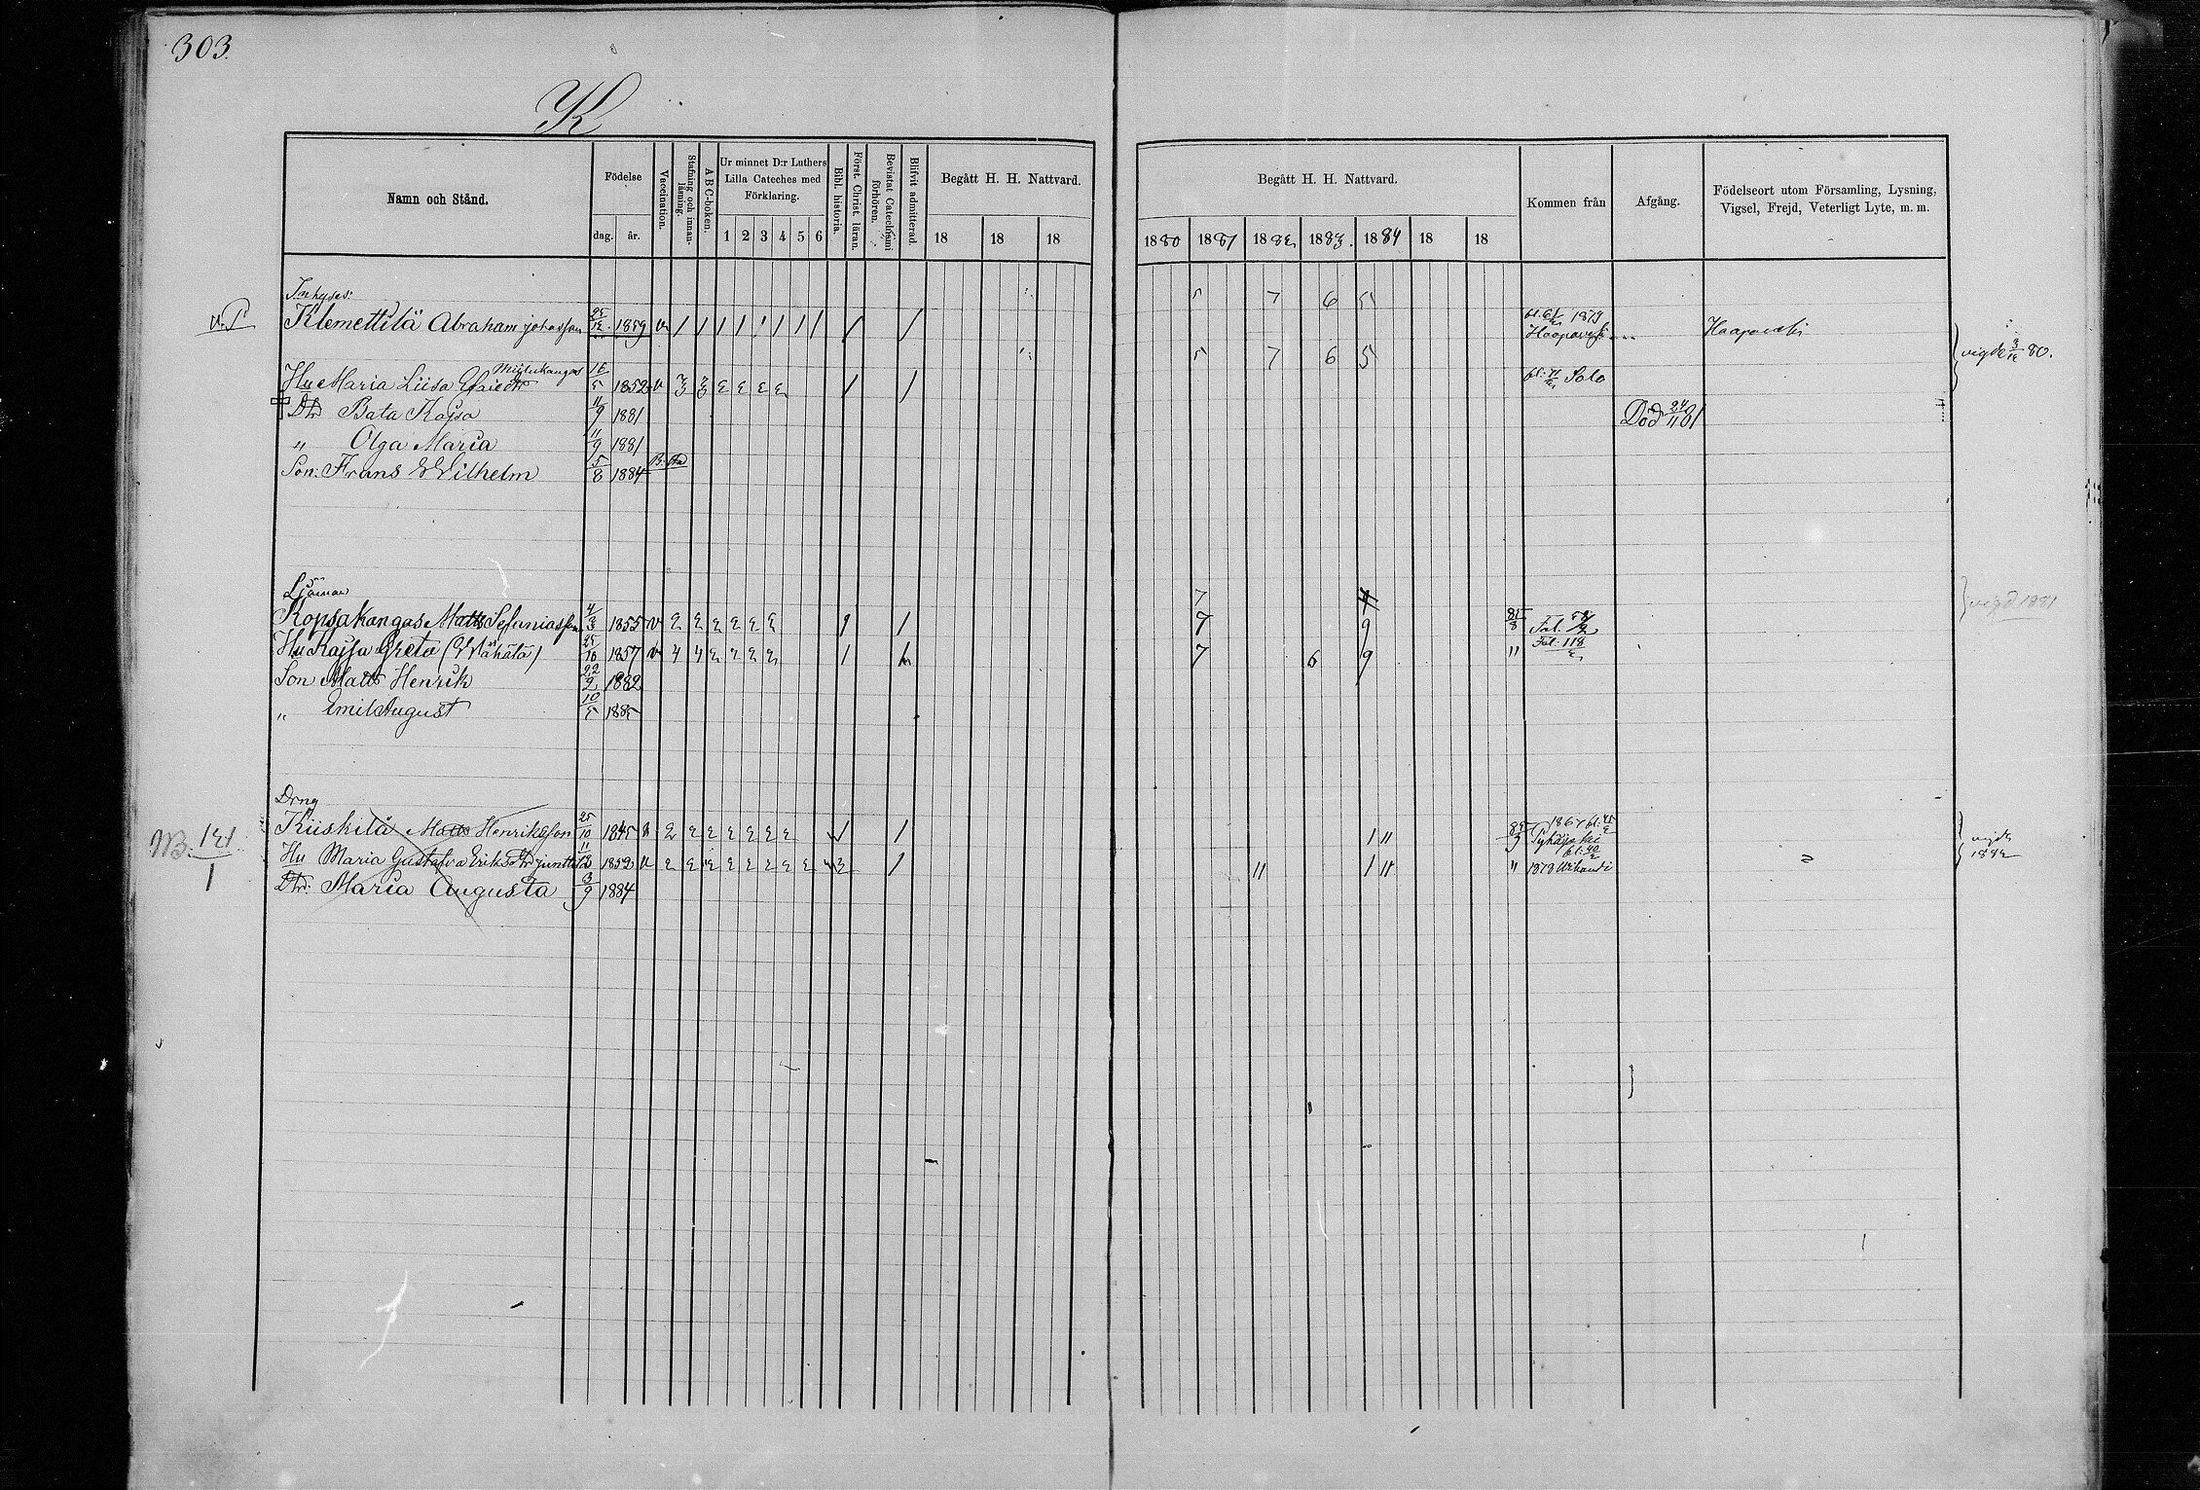 303.
K
Namn och Stånd.
Födelse
dag.
år.
Vaccination.
Stafning och innanläsning.
A B C-boken.
Ur minnet D:r Luthers Lilla Cateches med Förklaring.
1 2 3 4 5 6
Bibl. historia.
Först. Christ. läran.
Bevistat Catechismi förhören.
Blifvit admitterad.
Begått H. H. Nattvard.
18 18 18
Begått H. H. Nattvard.
1880 1881 1882 1883. 1884 18 18
Kommen från
Afgång.
Födelseort utom Församling, Lysning, Vigsel, Frejd, Veterligt Lyte, m. m.
Inhyses:
5 7 6 5
Klemettilä Abraham Johansson 25/12 1859 v 1879 Haapavesi Haapavesi
vigde 3/12 80.
5 7 6 5
Hu Maria Liisa 16/5 1852 v 3 3 2 2 2 2 Salo
Dtr Bata Kajsa 11/9 1881 Död 24/11 81
" Olga Maria 11/9 1881
Son: Frans Wilhelm 5/8 1884
7
Kopsakangas Matts Sefaniasson 4/3 1855 v 2 2 2 2 2 2 1 1 7 9 85/8
vigd 1881
Hu Kajsa Greta (Wähälä) 25/10 1857 v 4 4 2 2 2 2 1 1 7 6 9 " Fol: 118/2
Son Matts Henrik 22/2 1882
" Emil August 10/5 1885
Drng
NB. 121/1
Kiiskilä Matts Henriksson 25/10 1845 v 2 2 2 2 2 2 2 1 1 11 1867 Pyhäjoki
vigde 1882
Hu Maria Gustafva Eriksdtr Junttila 11/2 1852 v 2 2 2 2 2 2 2 2 1 11 1 11 " 1878
Dtr: Maria Augusta 3/9 1884